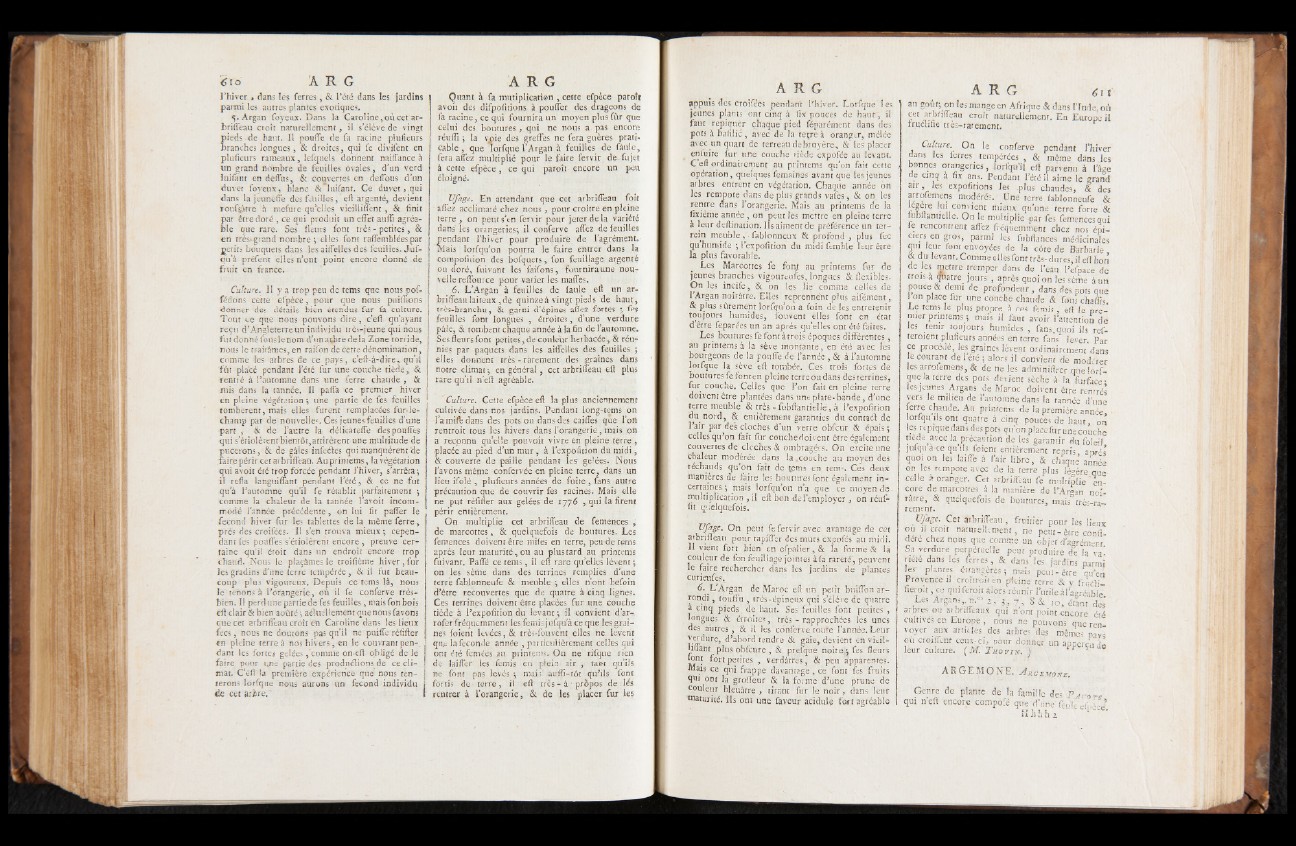 610 A R G
l'hiver, dans les serres, & l'été dans les jardins
parmi les autres plantes exotiques.
5. Argan soyeux. Dans la Caroline, où cet ar-
brisseau croît naturellement, il s'élève de vingt
pieds de haut. Il pousse de sa racine plusieurs
branches longues, & droites, qui se divisent en
plusieurs rameaux, lesquels donnent naissance à
un grand nombre de feuilles ovales, d'un verd
luisant en dessus, & couvertes en dessous d'un
duvet soyeux, blanc & luisant. Ce duvet, qui
dans la jeunesse des feuilles, est argenté, devient
roussâtre à mesure qu'elles vieillissent, & finit
par être doré, ce qui produit un effet aussi agréa-
ble que rare. Ses fleurs sont très-petites, &
en très-grand nombre; elles sont rassemblées par
petits bouquets dans les aisselles des feuilles. Jus-
qu'à présent elles n'ont point encore donné de
fruit en france.
Usage. Il y a trop peu de tems que nous pos-
sédons cette espèce, pour que nous puissions
donner des détails bien étendus sur sa culture.
Tout ce que nous pouvons dire, c'est qu'ayant
reçu d'Angleterre un individu très-jeune qui nous
fut donné sous le nom d'un arbre de la Zone torride,
nous le traitâmes, en raison de cette dénomination,
comme les arbres de ce pays, c'est-à-dire, qu'il
fût placé pendant l'été sur une couche tiède, &
rentré à l'automne dans une serre chaude, &
mis dans la tannée. Il passa ce premier hiver
en pleine végétation; une partie de ses feuilles
tombèrent, mais elles furent remplacées sur-le-
champ par de nouvelles. Ces jeunes feuilles d'une
part, & de l'autre la délicatesse des pousses
qui s'étiolèrent bientôt, attirèrent une multitude de
pucerons, & de gales insectes qui manquèrent de
faire périr cet arbrisseau. Au printems, la végétation
qui avoit été trop forcée pendant l'hiver, s'arrêta;
il resta languissant pendant l'été, & ce ne fut
qu'à l'automne qu'il se rétablit parfaitement;
comme la chaleur de la tannée l'avoit incom-
modé l'année précédente, on lui fit passer le
second hiver sur les tablettes de la même serre,
près des croisées. Il s'en trouva mieux; cepen-
dant ses pousses s'étiolèrent encore, preuve cer-
taine qu'il étoit dans un endroit encore trop
chaud. Nous le plaçâmes le troisième hiver, sur
les gradins d'une serre tempérée, & il fut beau-
coup plus vigoureux. Depuis ce tems là, nous
le tenons à l'orangerie, où il se conserve très-
bien. Il perd une partie de ses feuilles, mais son bois
est clair & bien aoûté; actuellement que nous savons
que cet arbrisseau croît en Caroline dans les lieux
secs, nous ne doutons pas qu'il ne puisse résister
en pleine terre à nos hivers, en le couvrant pen-
dant les fortes gelées, comme on est obligé de le
faire pour une partie des productions de ce cli-
mat. C'est la première expérience que nous ten-
terons lorsque nous aurons un second individu
de cet arbre.
A R G
Quant à sa mutiplication, cette espèce paroît
avoir des dispositions à pousser des dragcons de
sa racine, ce qui fournira un moyen plus sûr que
celui des boutures, qui ne nous a pas encore
réussi; la voie des greffes ne sera guères prati-
cable, que lorsque l'Argan à feuilles de saule,
sera assez multiplié pour le faire servir de sujet
à cette espèce, ce qui paroît encore un peu
éloigné.
Usage. En attendant que cet arbrisseau soit
assez acclimaté chez nous, pour croître en pleine
terre, on peut s'en servir pour jeter de la variété
dans les orangeries; il conserve assez de feuilles
pendant l'hiver pour produire de l'agrément.
Mais lorsqu'on pourra le faire entrer dans la
composition des bosquets, son feuillage argenté
ou doré, suivant les saisons, fournira une nou-
velle ressource pour varier les masses.
6. L'Argan à feuilles de saule est un ar-
brisseau laiteux, de quinze à vingt pieds de haut,
très-branchu, & garni d'épines assez fortes; ses
feuilles sont longues, étroites, d'une verdure
pâle, & tombent chaque année à la fin de l'automne.
Ses fleurs sont petites, de couleur herbacée, & réu-
nies par paquets dans les aisselles des feuilles;
elles donnent très-rarement des graines dans
notre climat; en général, cet arbrisseau est plus
rare qu'il n'est agréable.
Culture. Cette espèce est la plus anciennement
cultivée dans nos jardins. Pendant long-tems on
l'a mise dans des pots ou dans des caisses que l'on
rentroit tous les hivers dans l'orangerie, mais on
a reconnu qu'elle pouvoit vivre en pleine terre,
placée au pied d'un mur, à l'exposition du midi,
& couverte de paille pendant les gelées. Nous
l'avons même conservée en pleine terre, dans un
lieu isolé, plusieurs années de suite, sans autre
précaution que de couvrir ses racines. Mais elle
ne put résister aux gelées de 1776, qui la firent
périr entièrement.
On multiplie cet arbrisseau de semences,
de marcottes, & quelquefois de boutures. Les
semences doivent être mises en terre, peu de tems
après leur maturité, ou au plus tard au printems
suivant. Passé ce tems, il est rare qu'elles lèvent;
on les sème dans des terrines remplies d'une
terre sablonneuse & meuble; elles n'ont besoin
d'être recouvertes que de quatre à cinq lignes.
Ces terrines doivent être placées sur une couche
tiède à l'exposition du levant; il convient d'ar-
roser fréquemment les semis jusqu'à ce que les grai-
nes soient levées, & très-souvent elles ne lèvent
que la seconde année, particulièrement celles qui
ont été semées au printems. On ne risque rien
de laisser les semis en plein air, tant qu'ils
ne sont pas levés; mais aussi-tôt qu'ils sont
sortis de terre, il est très-à propos de les
rentrer à l'orangerie, & de les placer sur les
A R G
appuis des croisées pendant l'hiver. Lorsque les
jeunes plants ont cinq à six pouces de haut, il
faut repiquer chaque pied séparément dans des
pots à basilic, avec de la terre à oranger, mêlée
avec un quart de terreau de bruyère, & les placer
ensuite sur une couche tiède exposée au levant.
C'est ordinairement au printems qu'on fait cette
opération, quelques semaines avant que les jeunes
arbres entrent en végétation. Chaque année on
les rempote dans de plus grands vases, & on les
rentre dans l'orangerie. Mais au printems de la
sixième année, on peut les mettre en pleine terre
à leur destination. Ils aiment de préférence un ter-
rein meuble, sablonneux & profond, plus sec
qu'humide; l'exposition du midi semble leur être
la plus favorable.
Les Marcottes se font au printems sur de
jeunes branches vigoureuses, longues & flexibles.
On les incise, & on les lie comme celles de
l'Argan noirâtre. Elles reprennent plus aisément,
& plus sûrement lorsqu'on a soin de les entretenir
toujours humides, souvent elles sont en état
d'être séparées un an après qu'elles ont été faites.
Les boutures se font à trois époques différentes,
au printems à la sève montante, en été avec les
bourgeons de la pousse de l'année, & à l'automne
lorsque la sève est tombée. Ces trois sortes de
boutures se font en pleine terre ou dans des terrines,
sur couche. Celles que l'on fait en pleine terre
doivent être plantées dans une plate-bande, d'une
terre meuble & très-substantielle, à l'exposition
du nord, & entièrement garanties du contact de
l'air par des cloches d'un verre obscur & épais;
celles qu'on fait sur couche doivent être également
couvertes de cloches & ombragées. On excite une
chaleur modérée dans la couche au moyen des
réchauds qu'on fait de tems en tems. Ces deux
manières de faire les boutures sont également in-
certaines; mais lorsqu'on n'a que ce moyen de
multiplication, il est bon de l'employer, on réus-
sit quelquefois.
Usage. On peut se servir avec avantage de cet
arbrisseau pour tapisser des murs exposés au midi.
Il vient fort bien en espalier, & la forme & la
couleur de son feuillage jointes à sa rareté, peuvent
le faire rechercher dans les jardins de plantes
curieuses.
6. L'Argan de Maroc est un petit buisson ar-
rondi, touffu, très-épineux qui s'élève de quatre
à cinq pieds de haut. Ses feuilles sont petites,
longues & étroites, très-rapprochées les unes
des autres, & il les conserve toute l'année. Leur
verdure, d'abord tendre & gaie, devient en vieil-
lissant plus obscure, & presque noire; ses fleurs
sont fort petites, verdâtres, & peu apparentes.
Mais ce qui frappe davantage, ce sont ses fruits
qui ont la grosseur & la forme d'une prune de
couleur bleuâtre, tirant sur le noir, dans leur
maturité. Ils ont une saveur acidule fort agréable
A R G 611
au goût; on les mange en Afrique & dans l'Inde, où
cet arbrisseau croît naturellement. En Europe il
fructifie très-rarement.
Culture. On le conserve pendant l'hiver
dans les serres tempérées, & même dans les
bonnes orangeries, lorsqu'il est parvenu à l'âge
de cinq à six ans. Pendant l'été il aime le grand
air, les expositions les plus chaudes, & des
arrosemens modérés. Une terre sablonneuse &
légère lui convient mieux qu'une terre forte &
substantielle. On le multiplie par ses semences qui
se rencontrent assez fréquemment chez nos épi-
ciers en gros, parmi les substances médicinales
qui leur sont envoyées de la côte de Barbarie,
& du levant. Comme elles sont très-dures, il est bon
de les mettre tremper dans de l'eau l'espace de
trois à quatre jours, après quoi on les sème à un
pouce & demi de profondeur, dans des pots que
l'on place sur une couche chaude & sous chassis.
Le tems le plus propre à ces semis, est le pre-
mier printems; mais il faut avoir l'attention de
les tenir toujours humides, sans quoi ils res-
teroient plusieurs années en terre sans lever. Par
ce procédé, les graines lèvent ordinairement dans
le courant de l'été; alors il convient de modérer
les arrosemens, & de ne les administrer que lors-
que la terre des pots devient sèche à la surface;
les jeunes Argans de Maroc doivent être rentrés
vers le milieu de l'automne dans la tannée d'une
serre chaude. Au printems de la première année,
lorsqu'ils ont quatre à cinq pouces de haut, on
les repique dans des pots qu'on place sur une couche
tiède avec la précaution de les garantir du soleil,
jusqu'à ce qu'ils soient entièrement repris, après
quoi on les laisse à l'air libre, & chaque année
on les rempote avec de la terre plus légère que
celle à oranger. Cet arbrisseau se multiplie en-
core de marcottes à la manière de l'Argan noi-
râtre, & quelquefois de boutures, mais très-ra-
rement.
Usage. Cet arbrisseau, fruitier pour les lieux
où il croît naturellement, ne peut-être consi-
déré chez nous que comme un objet d'agrément.
Sa verdure perpétuelle peut produire de la va-
riété dans les serres, & dans les jardins parmi
les plantes étrangères; mais peut-être qu'en
Provence il croîtroit en pleine terre & y fructi-
fieroit, ce qui feroit alors réunir l'utile à l'agréable.
Les Argans, n.os 2, 3, 7, 8 & 10, étant des
arbres ou arbrisseaux qui n'ont point encore été
cultivés en Europe, nous ne pouvons que ren-
voyer aux articles des arbres des mêmes pays
où croissent ceux-ci, pour donner un apperçu de
leur culture. (M. THOUIN.)
ARGEMONE. ARGEMONE.
Genre de plante de la famille des PAVOTS,
qui n'est encore composé que d'une seule espèce.
Hhhh 2